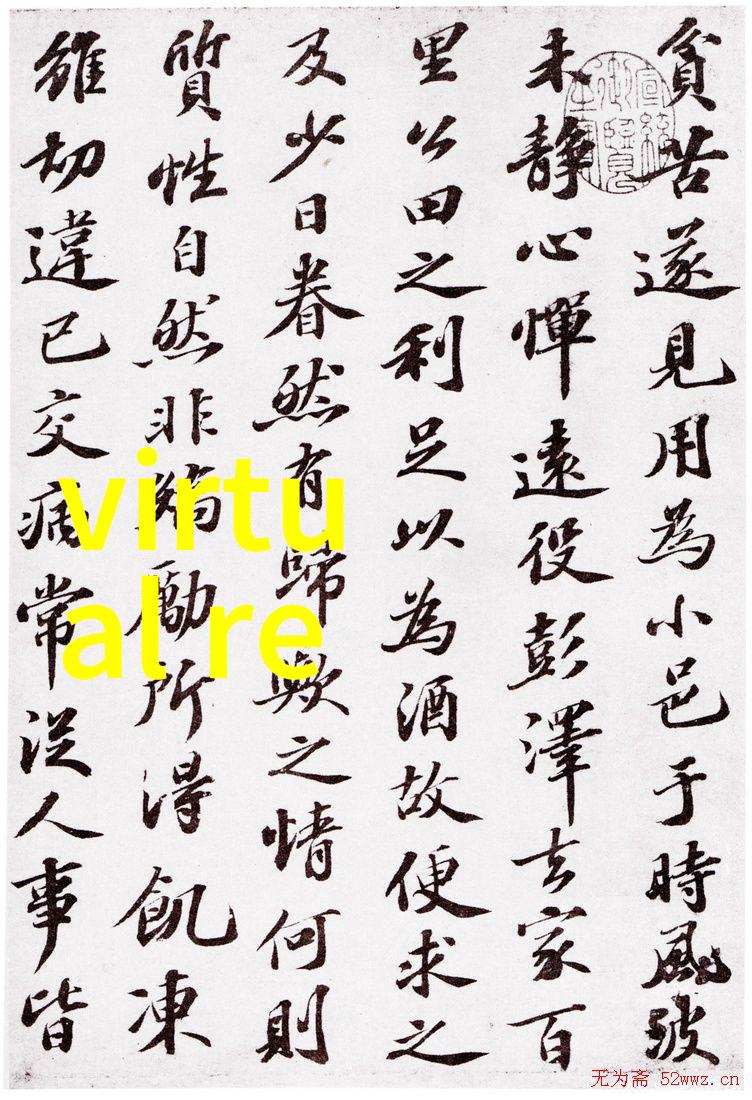 貧苦遂見用為小邑于時風波
未靜心憚遠役彭澤去家百
里公田之利足以為酒故便求之
及少日眷然有歸歟之情何則
質性自然非矯勵所得飢凍
雖切違已交病常從人事皆
virtu
al re
无为斋 52wwz.cn